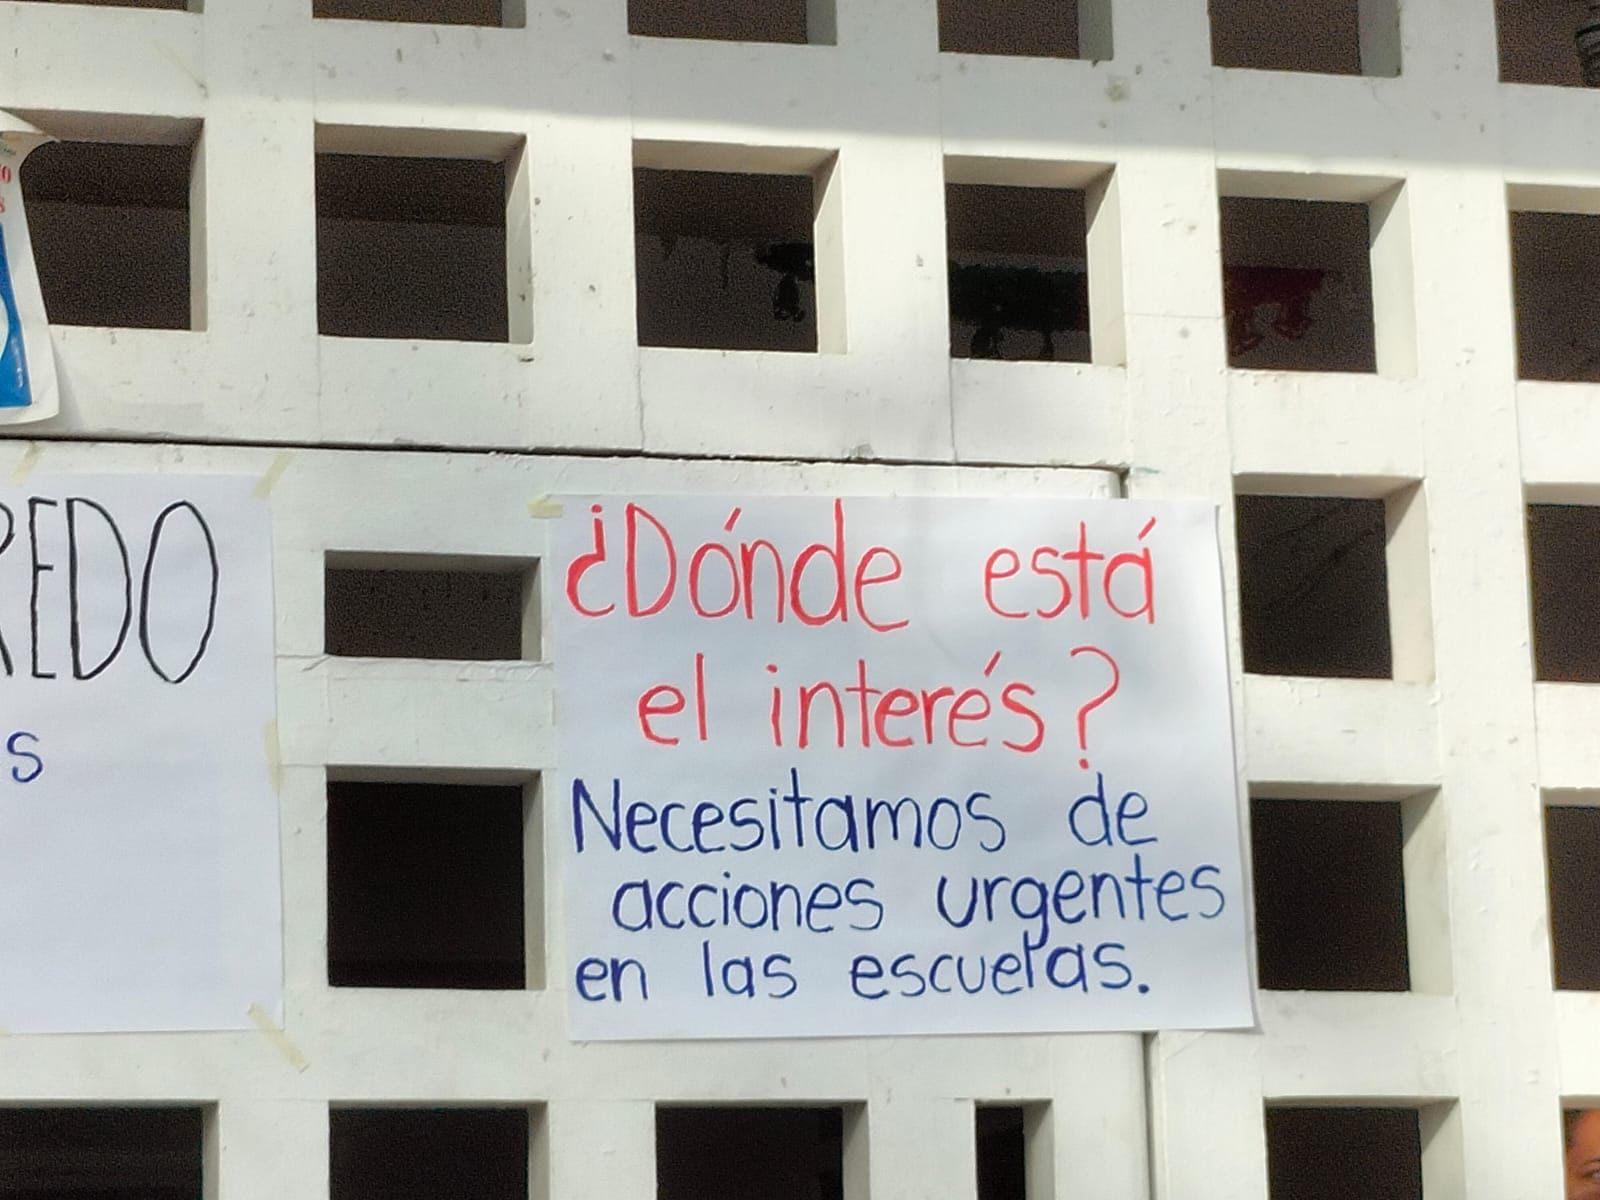 ¿Dónde está
el interés?
Necesitamos de
acciones urgentes
en las escuelas.